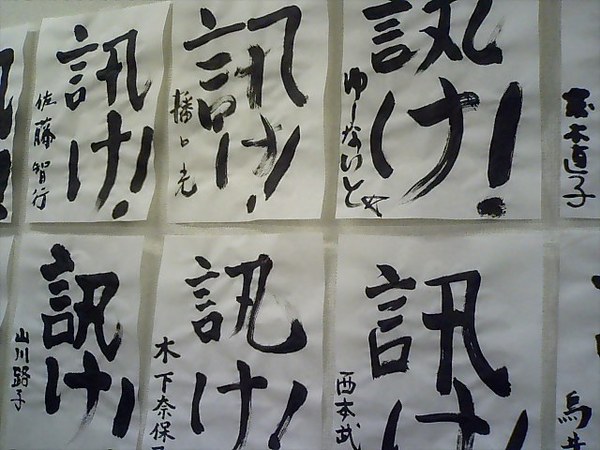 訊け!
佐藤智行
訊け!
訊け!
ゆーないと☆
木直子
訊け!
山川路子
訊け!
木下奈保
訊け!
西本武